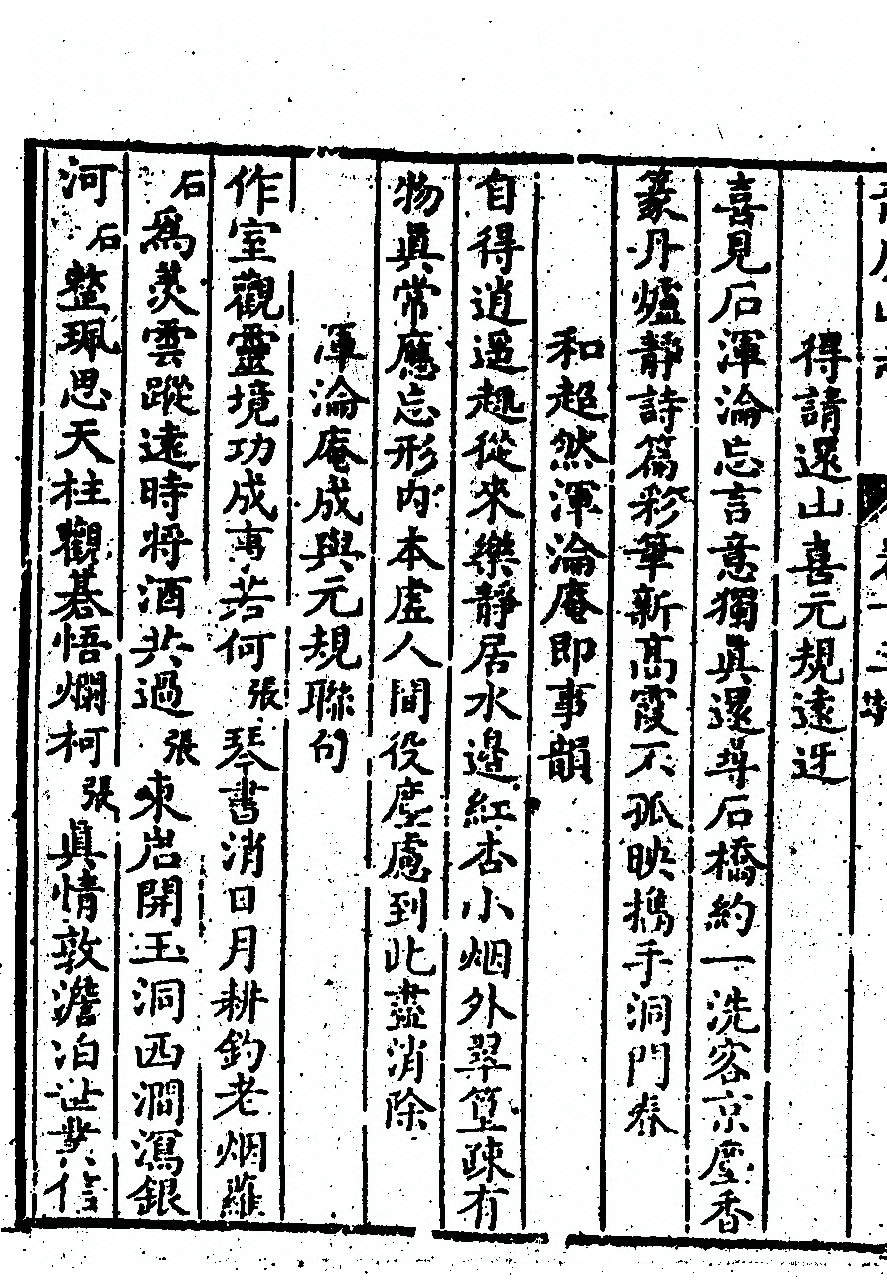 得請還山喜元規遠迓
喜見石渾淪忘言意獨眞還尋石橋約一洗客京塵香
篆丹爐靜詩篇彩筆新高霞不孤映携手洞門春
和超然渾淪庵即事韻
自得逍遥趣從來樂靜居水邊紅杏小烟外翠篁疎有
物眞常應忘形内本虚人間役塵慮到此盡消除
渾淪庵成與元規聯句
作室觀靈境功成事若何張琴書消日月耕釣老烟蘿
石爲羨雲蹤遠時将酒共過張東岩開玉洞西澗瀉銀
河石整珮思天柱觀碁悟爛柯張眞情敦澹泊世業信